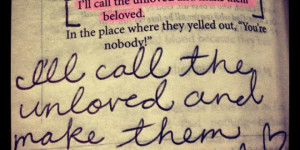 I'll call the unloved and make them
beloved.
In the place where they yelled out, "You're
nobody!"
I'll call the
unloved and
make them